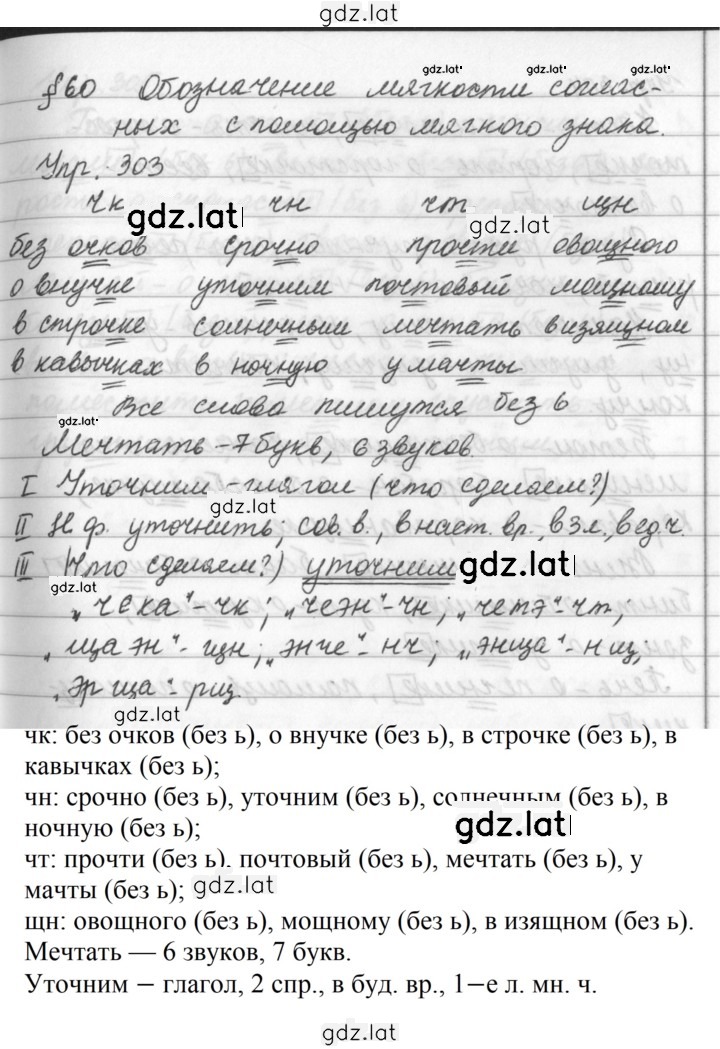 gdz.lat
gdz.lat gdz.lat
§60 Обозначение мягкости соглас-
ных с помощью мягкого знака.
Упр. 303
чк чн чт щн
gdz.lat gdz.lat
без очков срочно прочти овощного
о внучке уточним почтовый мощному
в строчке солнечным мечтать в изящном
в кавычках в ночную у мачты
Все слова пишутся без ь
gdz.lat
Мечтать - 7 букв, 6 звуков
I Уточним - глагол (что сделаем?)
gdz.lat
II Н.ф. уточнить; сов. в., в наст. вр., в 3 л., в ед. ч.
III (Что сделаем?) уточним gdz.lat
gdz.lat
„чека“ - чк; „чеэн“ - чн; „четэ“ - чт,
„ща эн“ - щн; „энче“ - нч; „энща“ - нщ;
„эрща“ - рщ.
gdz.lat
чк: без очков (без ь), о внучке (без ь), в строчке (без ь), в
кавычках (без ь);
чн: срочно (без ь), уточним (без ь), солнечным (без ь), в
ночную (без ь);
gdz.lat
чт: прочти (без ь), почтовый (без ь), мечтать (без ь), у
мачты (без ь); gdz.lat
щн: овощного (без ь), мощному (без ь), в изящном (без ь).
Мечтать — 6 звуков, 7 букв.
Уточним − глагол, 2 спр., в буд. вр., 1−е л. мн. ч.
gdz.lat